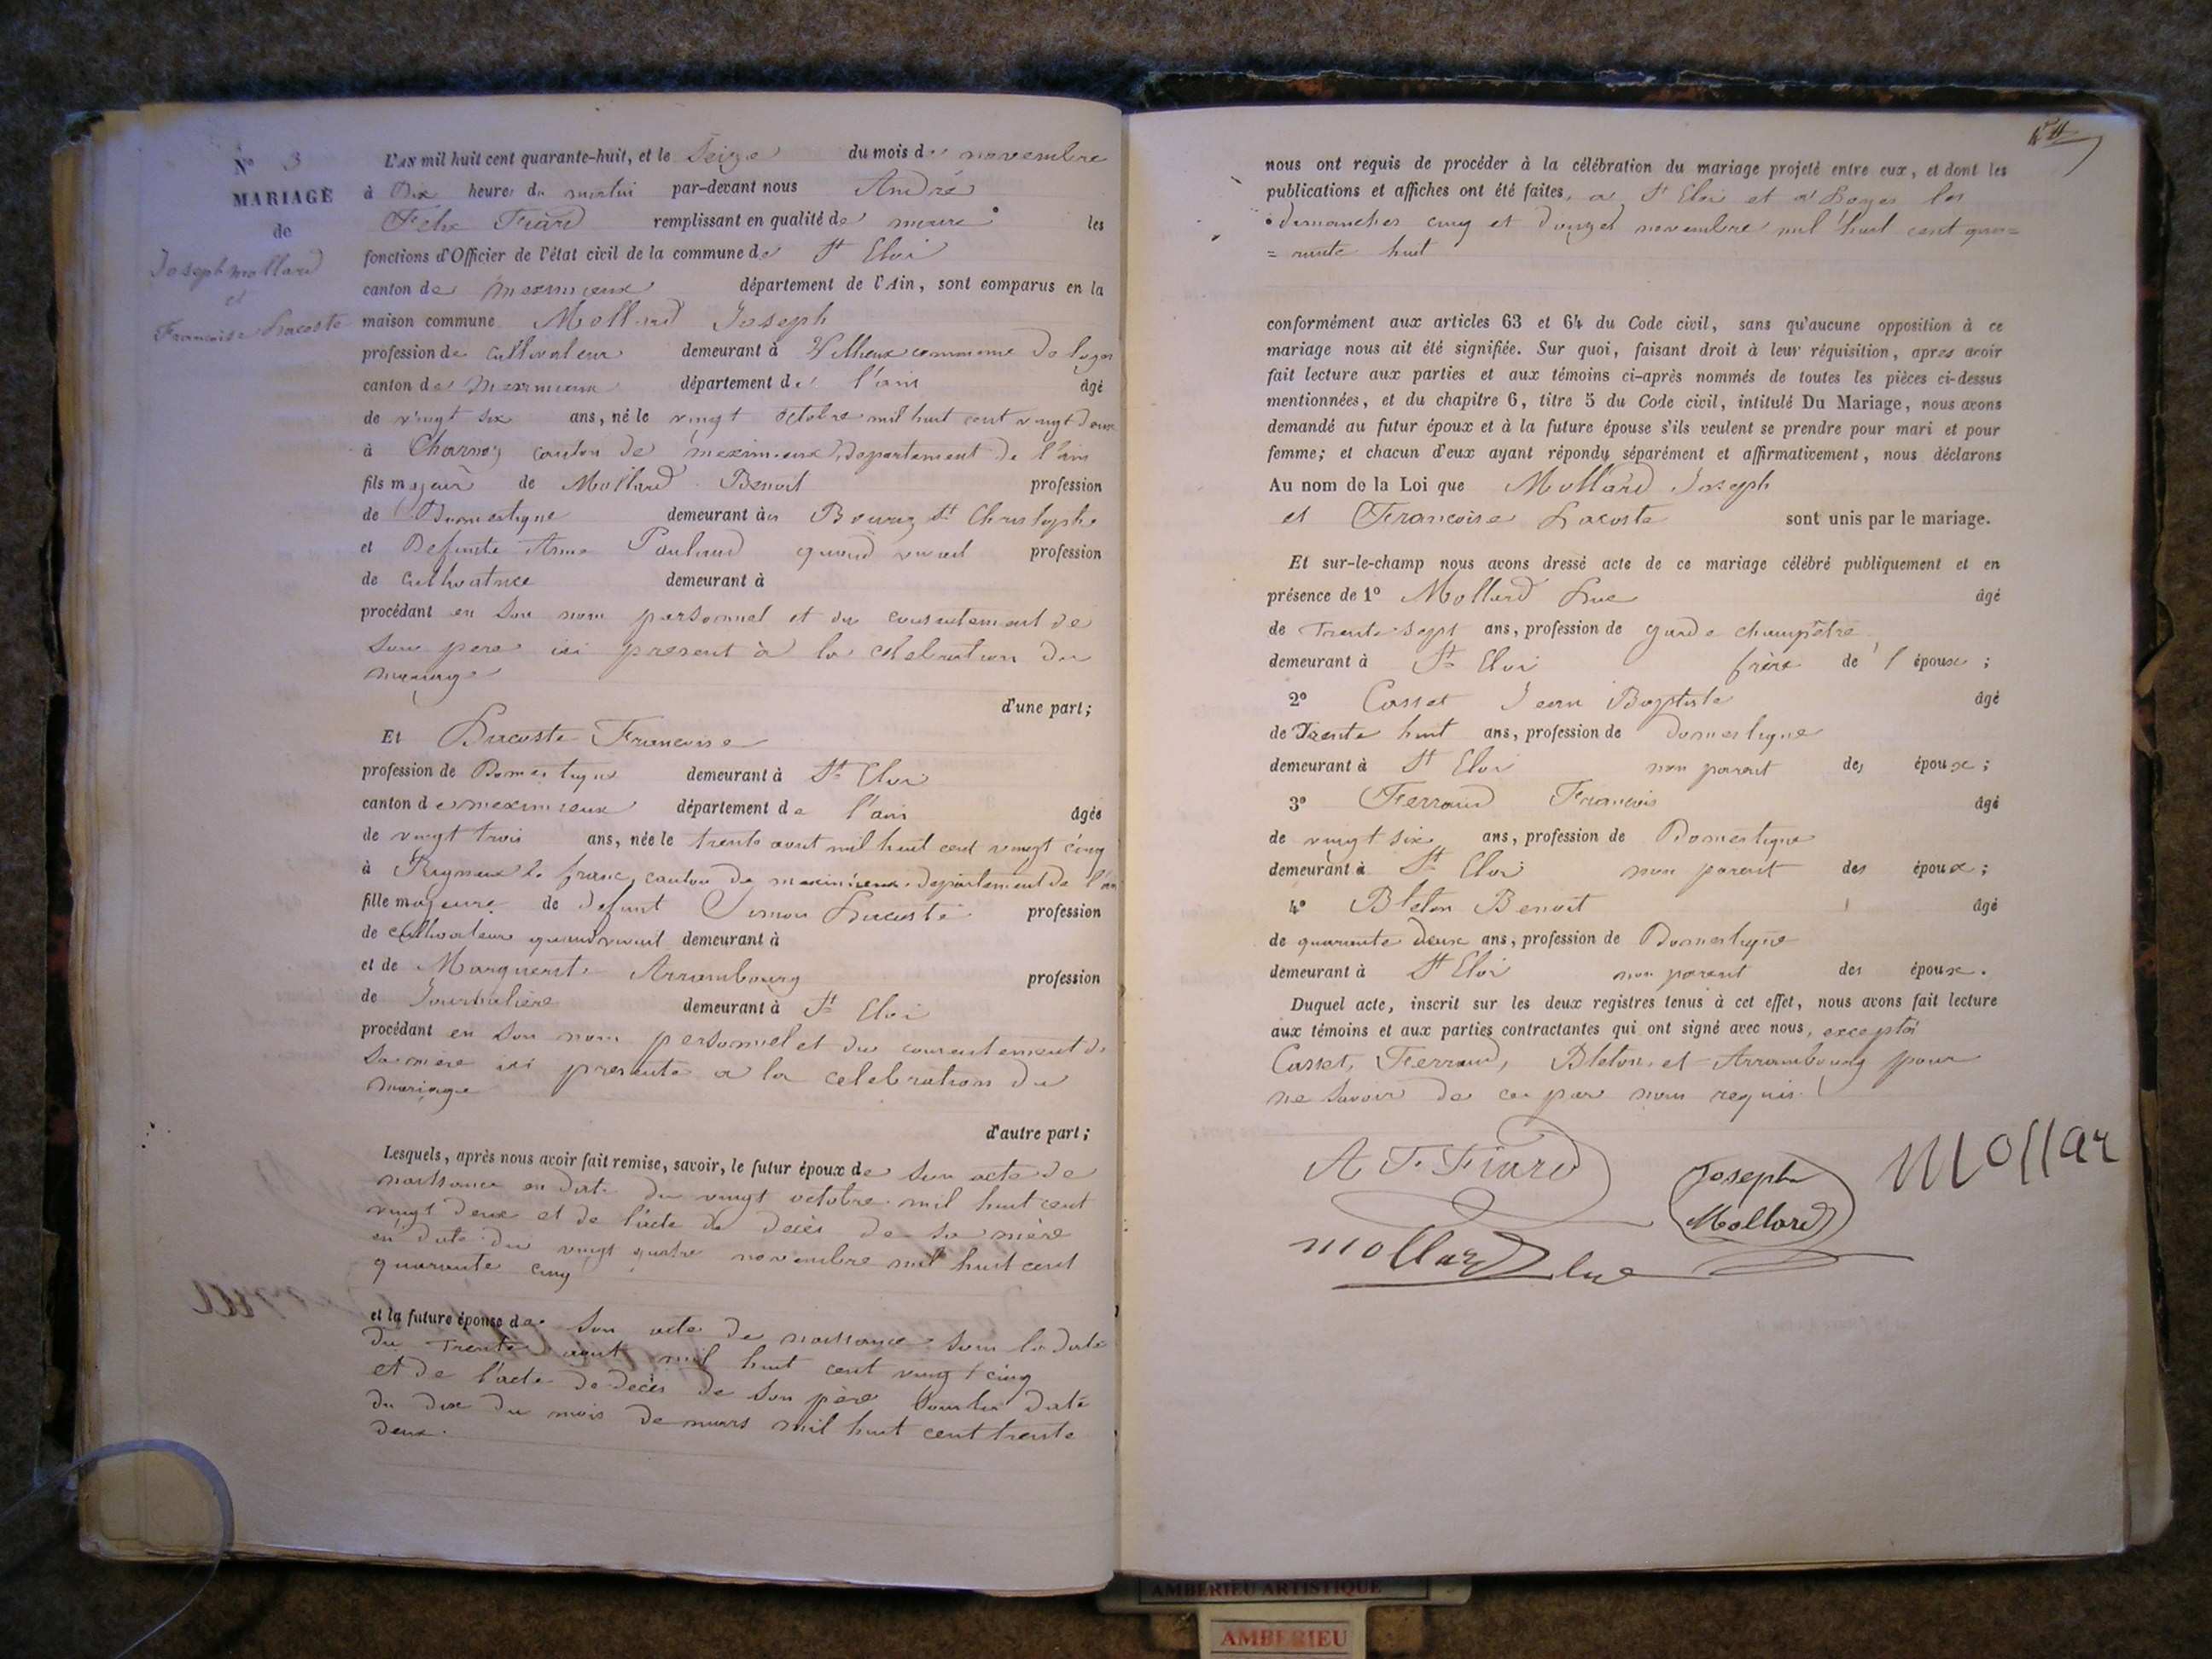 N° 3
MARIAGE
de
Joseph mollard
et
Francoise Lacoste
L'AN mil huit cent quarante-huit, et le Seize du mois de novembre
à Dix heures du matin par-devant nous André
Felix Fiard remplissant en qualité de maire les
fonctions d'Officier de l'état civil de la commune de St Eloi
canton de meximieux département de l'Ain, sont comparus en la
maison commune Mollard Joseph
profession de cultivateur demeurant à Villieux commune de loyes
canton de Meximieux département de l'ain âgé
de vingt six ans, né le vingt octobre mil huit cent vingt deux
à Charnoz canton de meximieux, departement de l'ain
fils majeur de Mollard Benoit profession
de Domestique demeurant à Bourg St Christophe
et Defunte Anne quand vivait profession
de cultivatrice demeurant à
procédant en son nom personnel et du consentement de
son pere ici present à la celebration du
mariage
d'une part;
Et Lacoste Francoise
profession de Domestique demeurant à St Eloi
canton de meximieux département de l'ain âgée
de vingt trois ans, née le trente aout mil huit cent vingt cinq
à Rigneux le franc, canton de meximieux, departement de l'ain
fille majeure de defunt Simon Lacoste profession
de cultivateur quand vivait demeurant à
et de Marguerite Arrambourg profession
de Journalière demeurant à St Eloi
procédant en son nom personnel et du consentement de
sa mère ici presente a la celebration du
mariage
d'autre part;
Lesquels, après nous avoir fait remise, savoir, le futur époux de son acte de
naissance en date du vingt octobre mil huit cent
vingt deux et de l'acte de decès de sa mère
en date du vingt quatre novembre mil huit cent
quarante cinq
et la future épouse de son acte de naissance sous la date
du trente aout mil huit cent vingt cinq
et de l'acte de decès de son père sous la date
du dix du mois de mars mil huit cent trente
deux.
nous ont requis de procéder à la célébration du mariage projeté entre eux, et dont les
publications et affiches ont été faites, a St Eloi et a Loyes les
dimanches cinq et douze novembre mil huit cent qua=
= rante huit
conformément aux articles 63 et 64 du Code civil, sans qu'aucune opposition à ce
mariage nous ait été signifiée. Sur quoi, faisant droit à leur réquisition, apres avoir
fait lecture aux parties et aux témoins ci-après nommés de toutes les pièces ci-dessus
mentionnées, et du chapitre 6, titre 5 du Code civil, intitulé Du Mariage, nous avons
demandé au futur époux et à la future épouse s'ils veulent se prendre pour mari et pour
femme; et chacun d'eux ayant répondu séparément et affirmativement, nous déclarons
Au nom de la Loi que Mollard Joseph
et Francoise Lacoste sont unis par le mariage.
Et sur-le-champ nous avons dressé acte de ce mariage célébré publiquement et en
présence de 1° Mollard Luc âgé
de Trente sept ans, profession de garde champêtre
demeurant à St Eloi frère de l'époux;
2° Casset Jean Baptiste âgé
de Trente huit ans, profession de domestique
demeurant à St Eloi non parent des époux;
3° Ferrand Francois âgé
de vingt six ans, profession de Domestique
demeurant à St Eloi non parent des époux;
4° Bleton Benoit âgé
de quarante deux ans, profession de Domestique
demeurant à St Eloi non parent des époux.
Duquel acte, inscrit sur les deux registres tenus à cet effet, nous avons fait lecture
aux témoins et aux parties contractantes qui ont signé avec nous, excepté
Casset, Ferrand, Bleton, et Arrambourg pour
ne savoir de ce par nous requis.
A F. Fiard
Joseph
Mollard
Mollar
mollard luc
AMBERIEU ARTISTIQUE
AMBERIEU